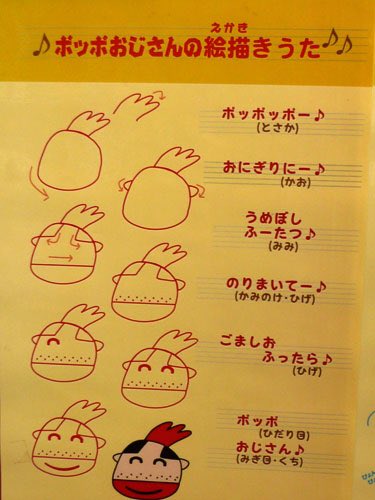 えかき
♪ポッポおじさんの絵描きうた♪♪
ポッポッポー♪
(とさか)
おにぎりにー♪
(かお)
うめぼし
ふーたつ♪
(みみ)
のりまいてー♪
(かみのけ・ひげ)
ごましお
ふったら♪
(ひげ)
ポッポ
(ひだり目)
おじさん♪
(みぎ目・くち)